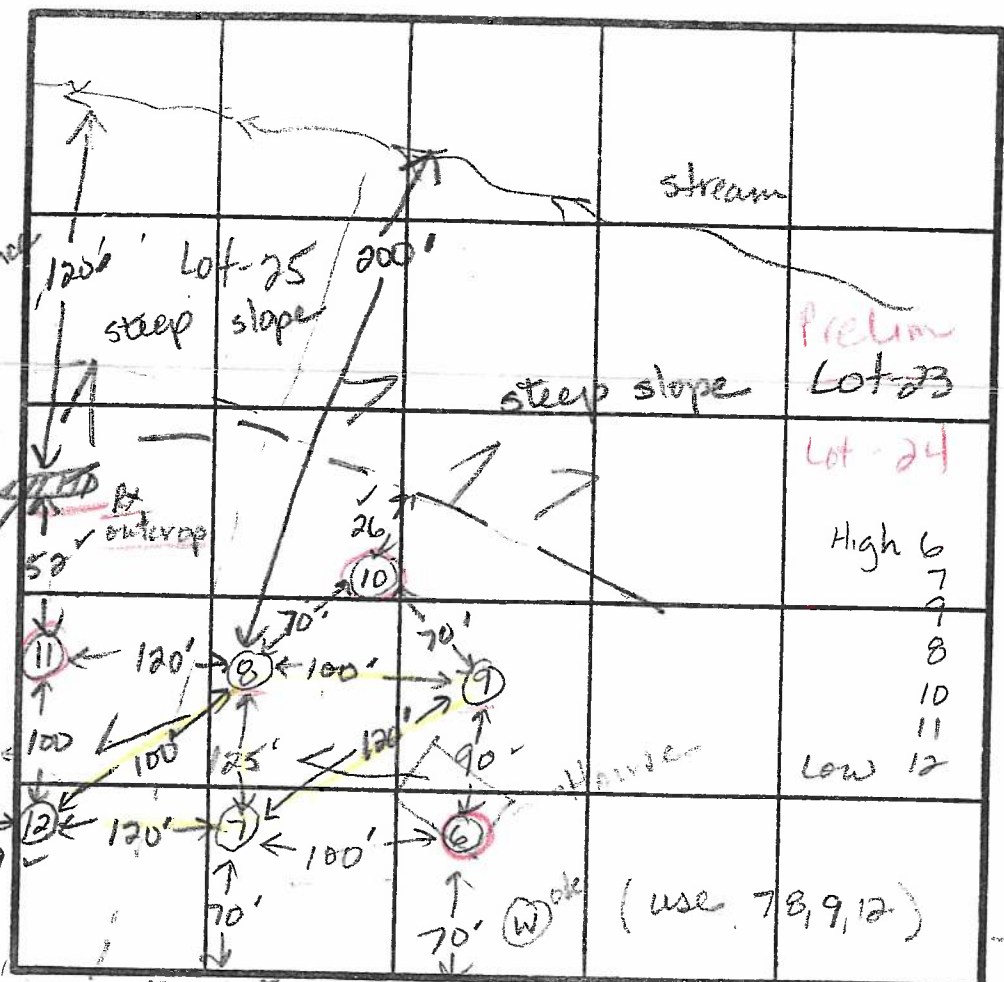 stream
120'
Lot-25
200'
steep slope
Prelim
Lot-23
steep slope
Lot-24
Rx
outcrop
26
52
High 6
7
9
8
10
11
Low 12
10
70'
70'
11
120'
8
100'
9
100
100'
125'
120'
90
House
12
120'
7
100'
6
70'
70'
W
(use 7 8, 9, 12)